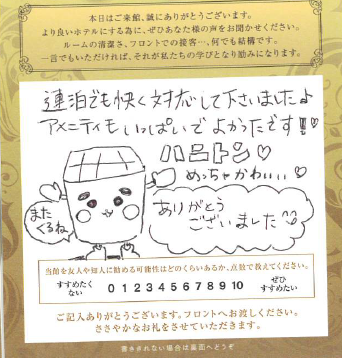 本日はご来館、誠にありがとうございます。
より良いホテルにする為に、ぜひあなた様の声をお聞かせください。
ルームの清潔さ、フロントでの接客…、何でも結構です。
一言でもいただければ、それが私たちの学びとなり励みになります。
連泊でも快く対応して下さいました♪
アメニティもいっぱいでよかったです!!♡
ハニトン♡
めっちゃかわいい♡
また
くるね
ありがとう
ございました
当館を友人や知人に勧める可能性はどのくらいあるか、点数で教えてください。
すすめたく
ない
0 1 2 3 4 5 6 7 8 9 10
ぜひ
すすめたい
ご記入ありがとうございます。フロントへお渡しください。
ささやかなお礼をさせていただきます。
書ききれない場合は裏面へどうぞ